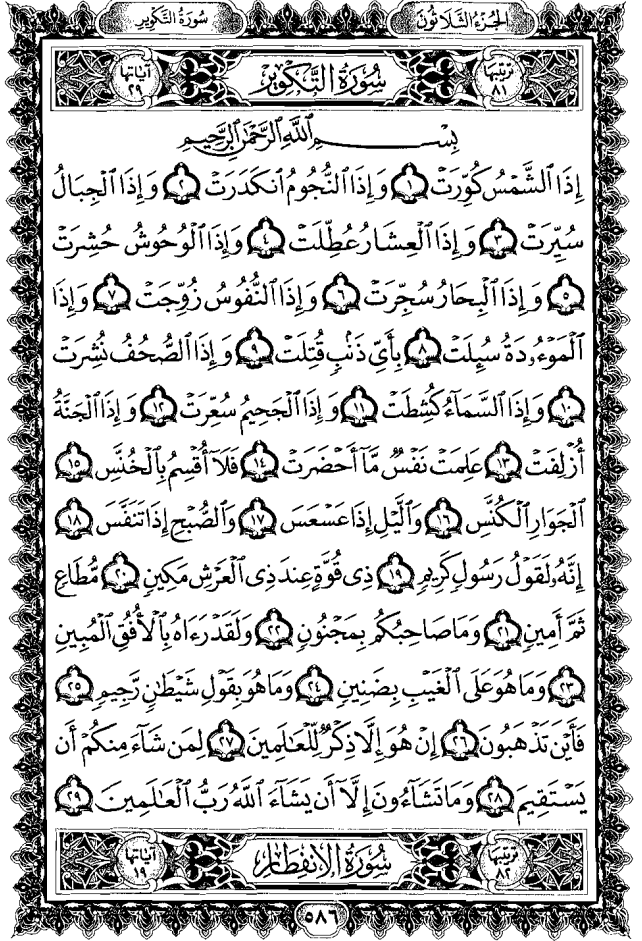 الجزء الثلاثون سورة التكوير
ترتيبها ٨١ سُورَةُ التَّكْوِيرِ آياتها ٢٩
بِسْمِ اللَّهِ الرَّحْمَٰنِ الرَّحِيمِ
إِذَا الشَّمْسُ كُوِّرَتْ ١ وَإِذَا النُّجُومُ انكَدَرَتْ ٢ وَإِذَا الْجِبَالُ
سُيِّرَتْ ٣ وَإِذَا الْعِشَارُ عُطِّلَتْ ٤ وَإِذَا الْوُحُوشُ حُشِرَتْ
٥ وَإِذَا الْبِحَارُ سُجِّرَتْ ٦ وَإِذَا النُّفُوسُ زُوِّجَتْ ٧ وَإِذَا
الْمَوْءُۥدَةُ سُئِلَتْ ٨ بِأَيِّ ذَنۢبٍ قُتِلَتْ ٩ وَإِذَا الصُّحُفُ نُشِرَتْ
١٠ وَإِذَا السَّمَآءُ كُشِطَتْ ١١ وَإِذَا الْجَحِيمُ سُعِّرَتْ ١٢ وَإِذَا الْجَنَّةُ
أُزْلِفَتْ ١٣ عَلِمَتْ نَفْسٌ مَّآ أَحْضَرَتْ ١٤ فَلَآ أُقْسِمُ بِالْخُنَّسِ ١٥
الْجَوَارِ الْكُنَّسِ ١٦ وَالَّيْلِ إِذَا عَسْعَسَ ١٧ وَالصُّبْحِ إِذَا تَنَفَّسَ ١٨
إِنَّهُۥ لَقَوْلُ رَسُولٍ كَرِيمٍ ١٩ ذِى قُوَّةٍ عِندَ ذِى الْعَرْشِ مَكِينٍ ٢٠ مُّطَاعٍ
ثَمَّ أَمِينٍ ٢١ وَمَا صَاحِبُكُم بِمَجْنُونٍ ٢٢ وَلَقَدْ رَءَاهُ بِالْأُفُقِ الْمُبِينِ
٢٣ وَمَا هُوَ عَلَى الْغَيْبِ بِضَنِينٍ ٢٤ وَمَا هُوَ بِقَوْلِ شَيْطَٰنٍ رَّجِيمٍ ٢٥
فَأَيْنَ تَذْهَبُونَ ٢٦ إِنْ هُوَ إِلَّا ذِكْرٌ لِّلْعَٰلَمِينَ ٢٧ لِمَن شَآءَ مِنكُمْ أَن
يَسْتَقِيمَ ٢٨ وَمَا تَشَآءُونَ إِلَّآ أَن يَشَآءَ اللَّهُ رَبُّ الْعَٰلَمِينَ ٢٩
ترتيبها ٨٢ سُورَةُ الانفِطَارِ آياتها ١٩
٥٨٦